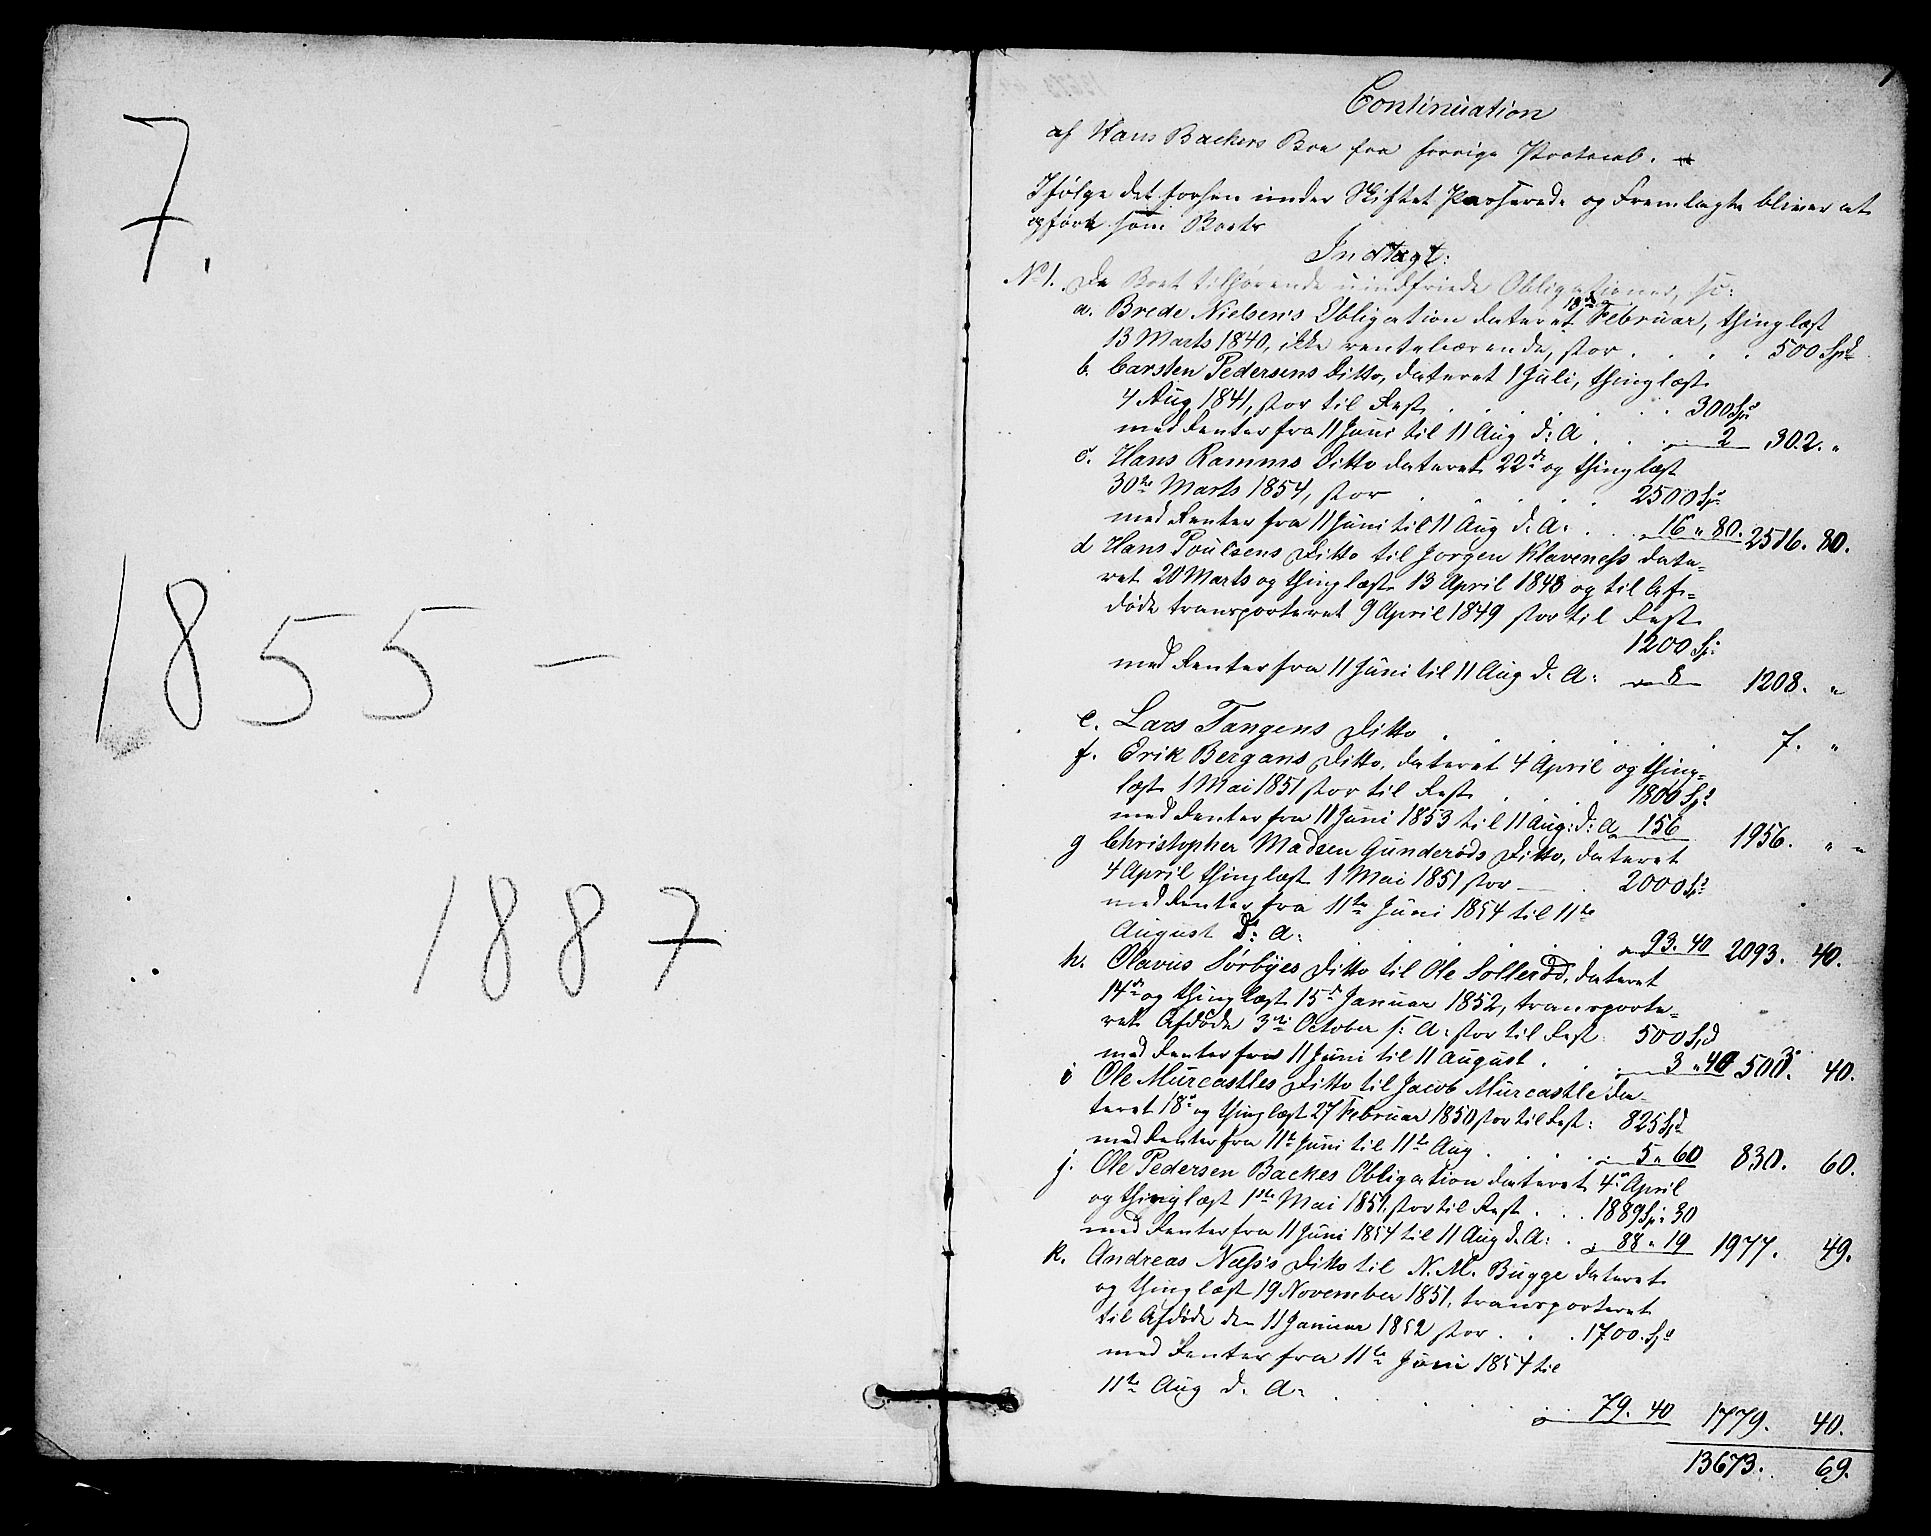 7.
1855 –
1887
Continuation
af Hans Backers Boe fra forrige Protocol.
Ifølge det forhen under Skiftet Passerede og Fremlagte bliver at
opføre som Boets
Indtægt:
No 1. De Boet tilhørende uindfriede Obligationer, sc:
a. Brede Nielsens Obligation dateret 18de Februar, thinglæst
13 Marts 1840, ikke rentebærende, stor . . . . 500 Spd
b. Carsten Pedersens Ditto, dateret 1 Juli, thinglæst
4 Aug 1841, stor til Rest . . . . . 300 Spd
med Renter fra 11 Juni til 11 Aug d: A . . . 2 302. "
c. Hans Ramms Ditto dateret 22de og thinglæst
30te Marts 1854, stor . . . . . 2500 Sp
med Renter fra 11 Juni til 11 Aug d. A. . . 16 " 80. 2516. 80.
d Hans Poulsens Ditto til Jørgen Klaveness date=
ret 20 Marts og thinglæst 13 April 1843 og til Af=
døde transporteret 9 April 1849 stor til Rest
1200 Sp:
med Renter fra 11 Juni til 11 Aug d. A: 8 1208. "
e. Lars Tangens Ditto . . . . . . 7. "
f. Erik Bergans Ditto, dateret 4 April og thing=
læst 1 Mai 1851 stor til Rest . . . 1800 Sp
med Renter fra 11 Juni 1853 til 11 Aug: d: A 156 1956. " "
g Christopher Madsen Gunderøds Ditto, dateret
4 April thinglæst 1 Mai 1851 stor — . 2000 Sp
med Renter fra 11te Juni 1854 til 11te
August d: A: . . . . . 93. 40 2093. 40.
h. Olavus Sørbyes Ditto til Ole Sollerød, dateret
14de og thinglæst 15de Januar 1852, transporte=
ret Afdøde 3die October s: A: stor til Rest 500 Spd
med Renter fra 11 Juni til 11 August . . . 3 " 40 503. 40.
i Ole Murcastles Ditto til Jacob Murcastle da=
teret 18de og thinglæst 27 Februar 1850 stor til Rest: 825 Spd
med Renter fra 11te Juni til 11te Aug . . . . 5 " 60 830. 60.
j. Ole Pedersen Backes Obligation dateret 4de April
og thinglæst 1ste Mai 1851, stor til Rest . . . 1889 Sp: 30
med Renter fra 11 Juni 1854 til 11 Aug d. A: . 88 " 19 1977. 49.
k. Andreas Næss's Ditto til N. M. Bugge dateret
og thinglæst 19 November 1851, transporteret
til Afdøde den 11 Januar 1852 stor . . . 1700. Spd
med Renter fra 11te Juni 1854 til
11te Aug d. A: . . . . . 79. 40 1779. 40.
13673. 69.